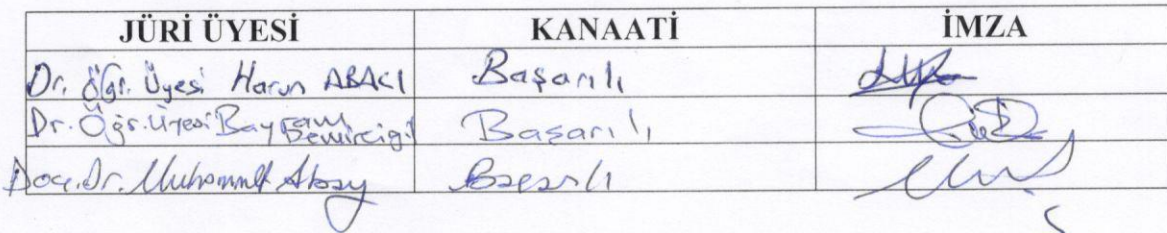 JÜRİ ÜYESİ KANAATİ İMZA
Dr. Öğr. Üyesi Harun ABACI Başarılı
Dr. Öğr. Üyesi Bayram Demircigil Başarılı
Doç. Dr. Muhammet Abay Başarılı